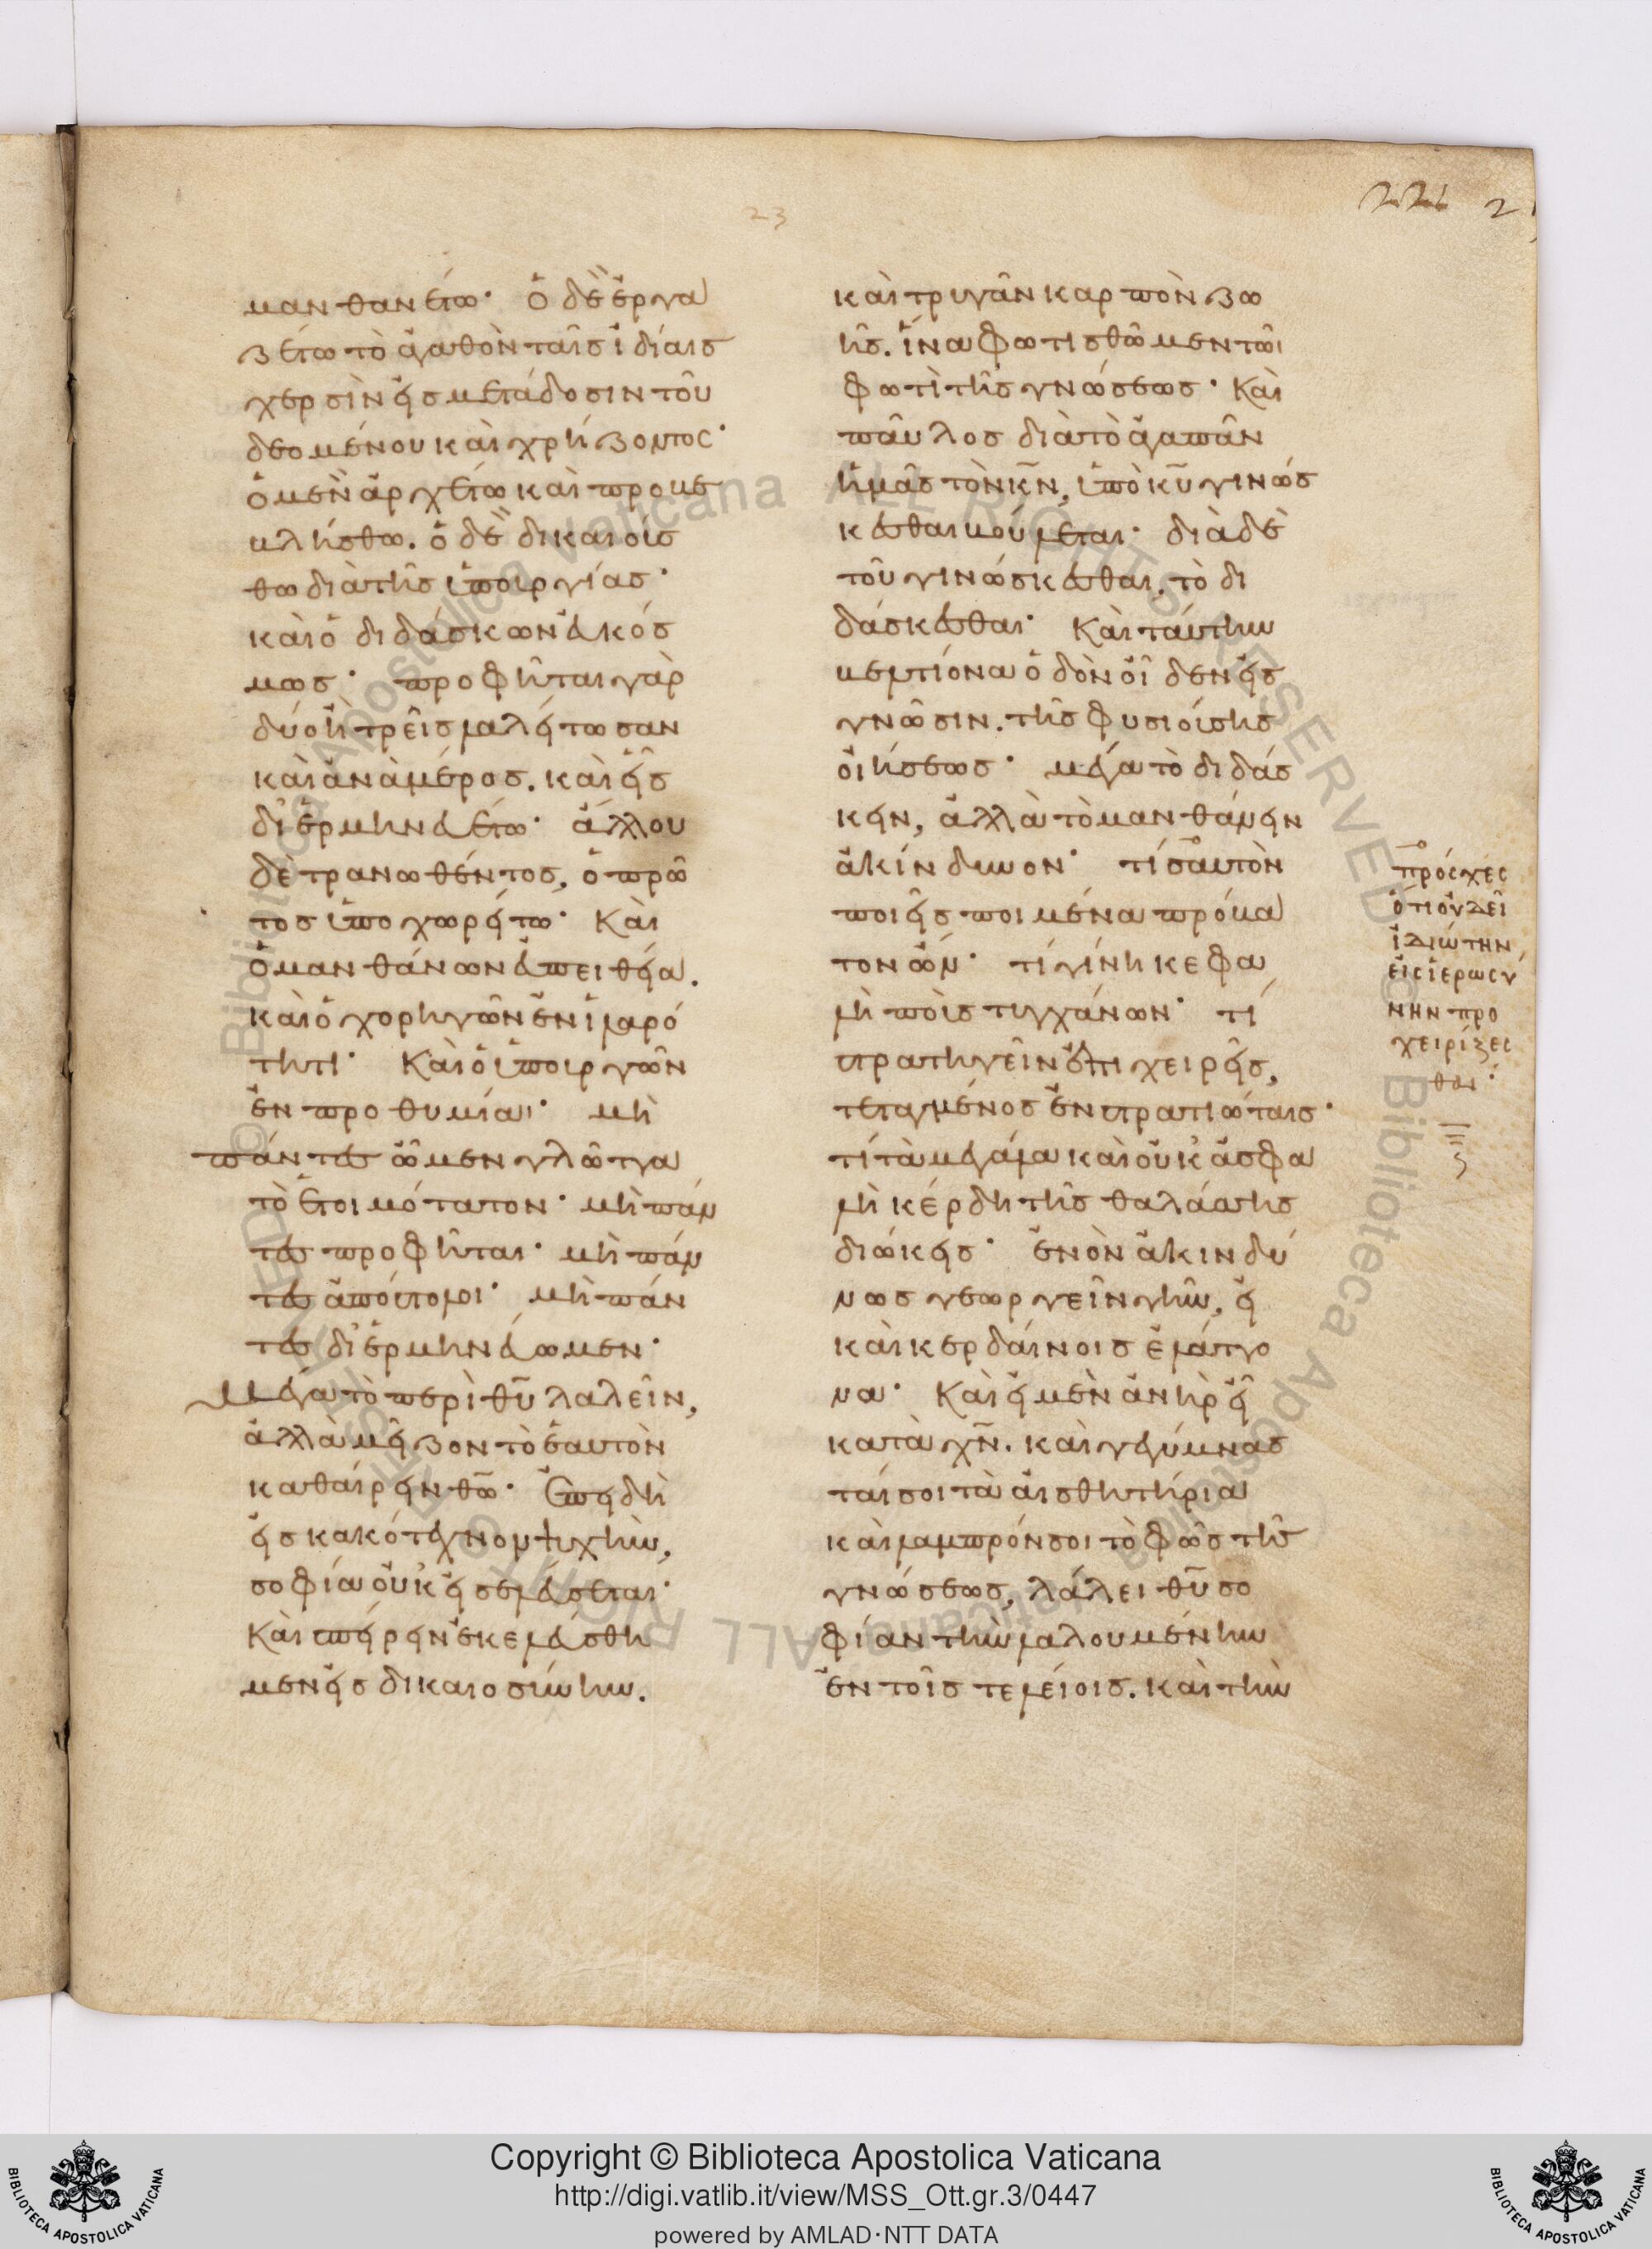 23
221
μανθανέτω· ὁ δὲ ἐργα
ζέτω τὸ ἀγαθὸν ταῖς ἰδίαις
χερσὶν εἰς μετάδοσιν τοῦ
δεομένου καὶ χρήζοντος·
ὁ μὲν ἀρχέτω καὶ προκε
κλήσθω. ὁ δὲ δικαιούσ
θω διὰ τῆς ὑπουργίας·
καὶ ὁ διδάσκων εὐκόσ
μως· προφῆται γὰρ
δύο ἢ τρεῖς λαλείτωσαν
καὶ ἀνὰ μέρος. καὶ εἷς
διερμηνευέτω· ἄλλου
δὲ τρανωθέντος, ὁ πρῶ
τος ὑποχωρείτω· Καὶ
ὁ μανθάνων ἐν εὐπειθείᾳ.
καὶ ὁ χορηγῶν ἐν ἱλαρό
τητι· Καὶ ὁ ὑπουργῶν
ἐν προθυμίαι· μὴ
πάντες ὦμεν γλῶσσα
τὸ ἑτοιμότατον· μὴ πάν
τες προφῆται· μὴ πάν
τες ἀπόστολοι· μὴ πάν
τες διερμηνεύωμεν·
Μέγα τὸ περὶ θῦ λαλεῖν,
ἀλλὰ μεῖζον τὸ ἑαυτὸν
καθαίρειν θῶ· Ἐπειδὴ
εἰς κακότεχνον ψυχὴν,
σοφία οὐκ εἰσελεύσεται·
Καὶ σπείρειν ἐκελεύσθη
μεν εἰς δικαιοσύνην.
καὶ τρυγᾶν καρπὸν ζω
ῆς. ἵνα φωτισθῶμεν τῶι
φωτὶ τῆς γνώσεως· Καὶ
παῦλος διὰ τὸ ἀγαπᾶν
ἡμᾶς τὸν κν, ὑπὸ κῦ γινώσ
κεσθαι βούλεται· διὰ δὲ
τοῦ γινώσκεσθαι, τὸ δι
δάσκεσθαι· Καὶ ταύτην
κρείττονα ὁδὸν οἶδεν εἰς
γνῶσιν. τῆς φυσιούσης
οἰήσεως· μέγα τὸ διδάσ
κειν, ἀλλὰ τὸ μανθάνειν
ἀκίνδυνον· τί σαυτὸν
ποιεῖς ποιμένα πρόβα
τον ὤν· τί γίνη κεφα
λὴ ποὺς τυγχάνων· τί
στρατηγεῖν ἐπιχειρεῖς,
τεταγμένος ἐν στρατιώταις·
τί τὰ μεγάλα καὶ οὐκ ἀσφα
λῆ κέρδη τῆς θαλάσσης
διώκεις· ἐνὸν ἀκινδύ
νως γεωργεῖν γῆν, εἰ
καὶ κερδαίνοις ἐλάττο
να· Καὶ εἰ μὲν ἀνὴρ εἶ
κατὰ χν. καὶ γεγύμνασ
ταί σοι τὰ αἰσθητήρια
καὶ λαμπρόν σοι τὸ φῶς τῆς
γνώσεως, λάλει θῦ σο
φίαν τὴν λαλουμένην
ἐν τοῖς τελείοις. καὶ τὴν
πρόσχες
ὅτι οὐ δεῖ
ἰδιώτην
εἰς ἱερωσύ
νην προ
χειρίζεσ
θαι·
Copyright © Biblioteca Apostolica Vaticana
http://digi.vatlib.it/view/MSS_Ott.gr.3/0447
powered by AMLAD·NTT DATA
BIBLIOTECA APOSTOLICA VATICANA
BIBLIOTECA APOSTOLICA VATICANA